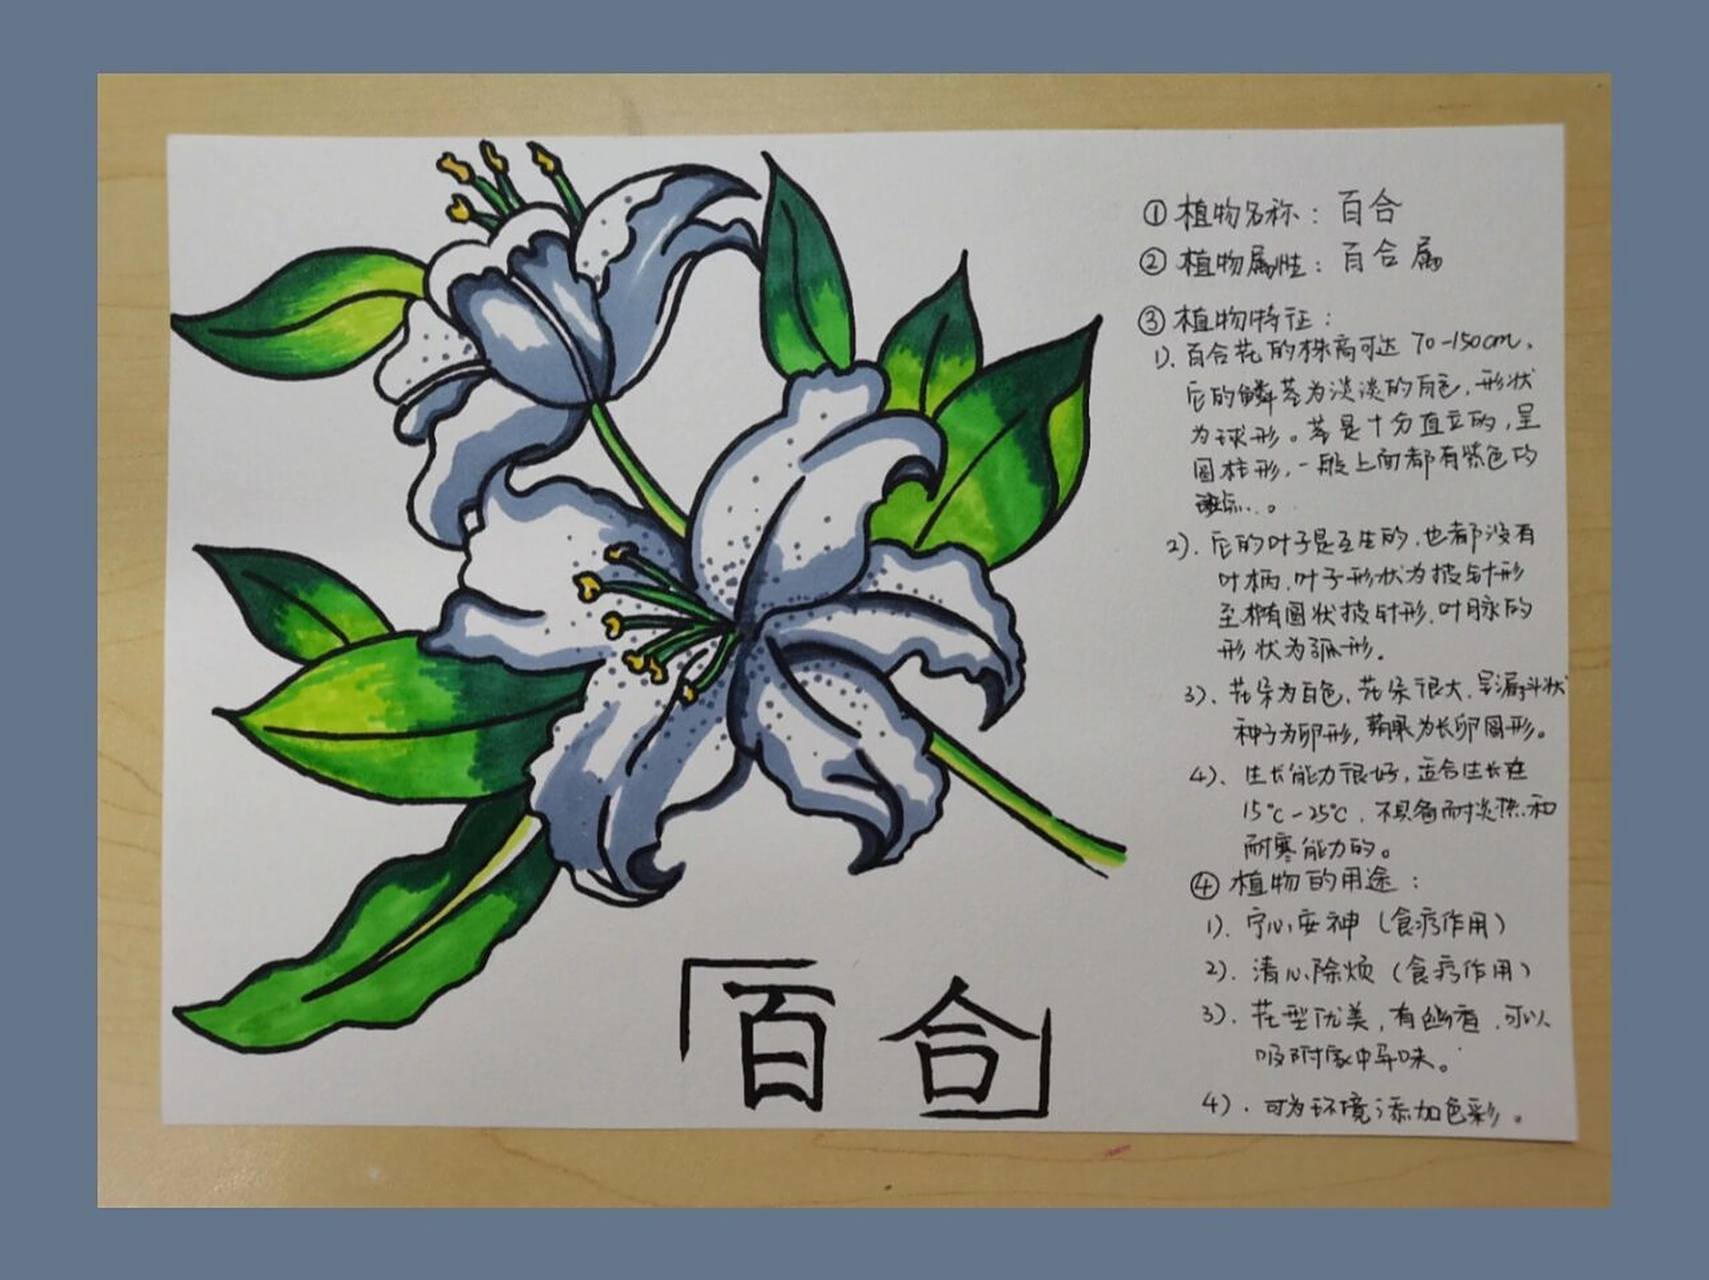 ① 植物名称：百合
② 植物属性：百合属
③ 植物特征：
1). 百合花的株高可达 70-150cm,
它的鳞茎为淡淡的白色, 形状
为球形。茎是十分直立的, 呈
圆柱形, 一般上面都有紫色的
斑点..。
2). 它的叶子是互生的, 也都没有
叶柄, 叶子形状为披针形
至椭圆状披针形, 叶脉的
形状为弧形.
3). 花朵为白色, 花朵很大, 呈漏斗状
种子为卵形, 蒴果为长卵圆形。
4). 生长能力很好, 适合生长在
15℃-25℃, 不具备耐炎热和
耐寒能力的。
④ 植物的用途：
1). 宁心安神（食疗作用）
2). 清心除烦（食疗作用）
3). 花型优美, 有幽香, 可以
吸附家中异味。
4). 可为环境添加色彩。
「百合」